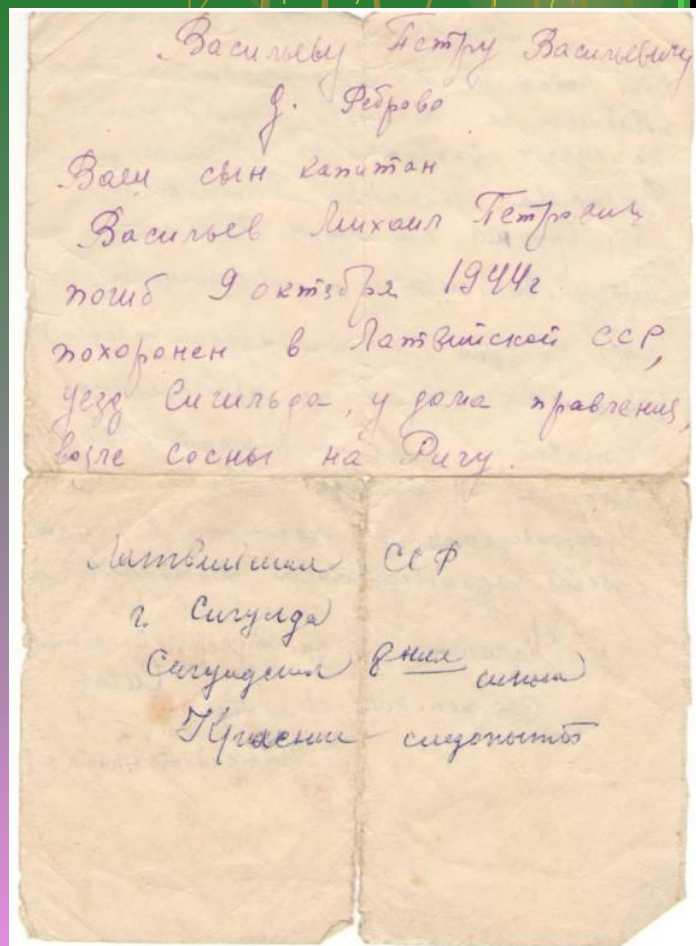 Васильеву Петру Васильевичу
д. Реброво
Ваш сын капитан
Васильев Михаил Петрович
погиб 9 октября 1944г
похоронен в Латвийской ССР,
уезд Сигильда, у дома правления,
возле сосны на Ригу.
Латвийская ССР
г. Сигулда
Сигулдская 8 нил школа
Красные следопыты